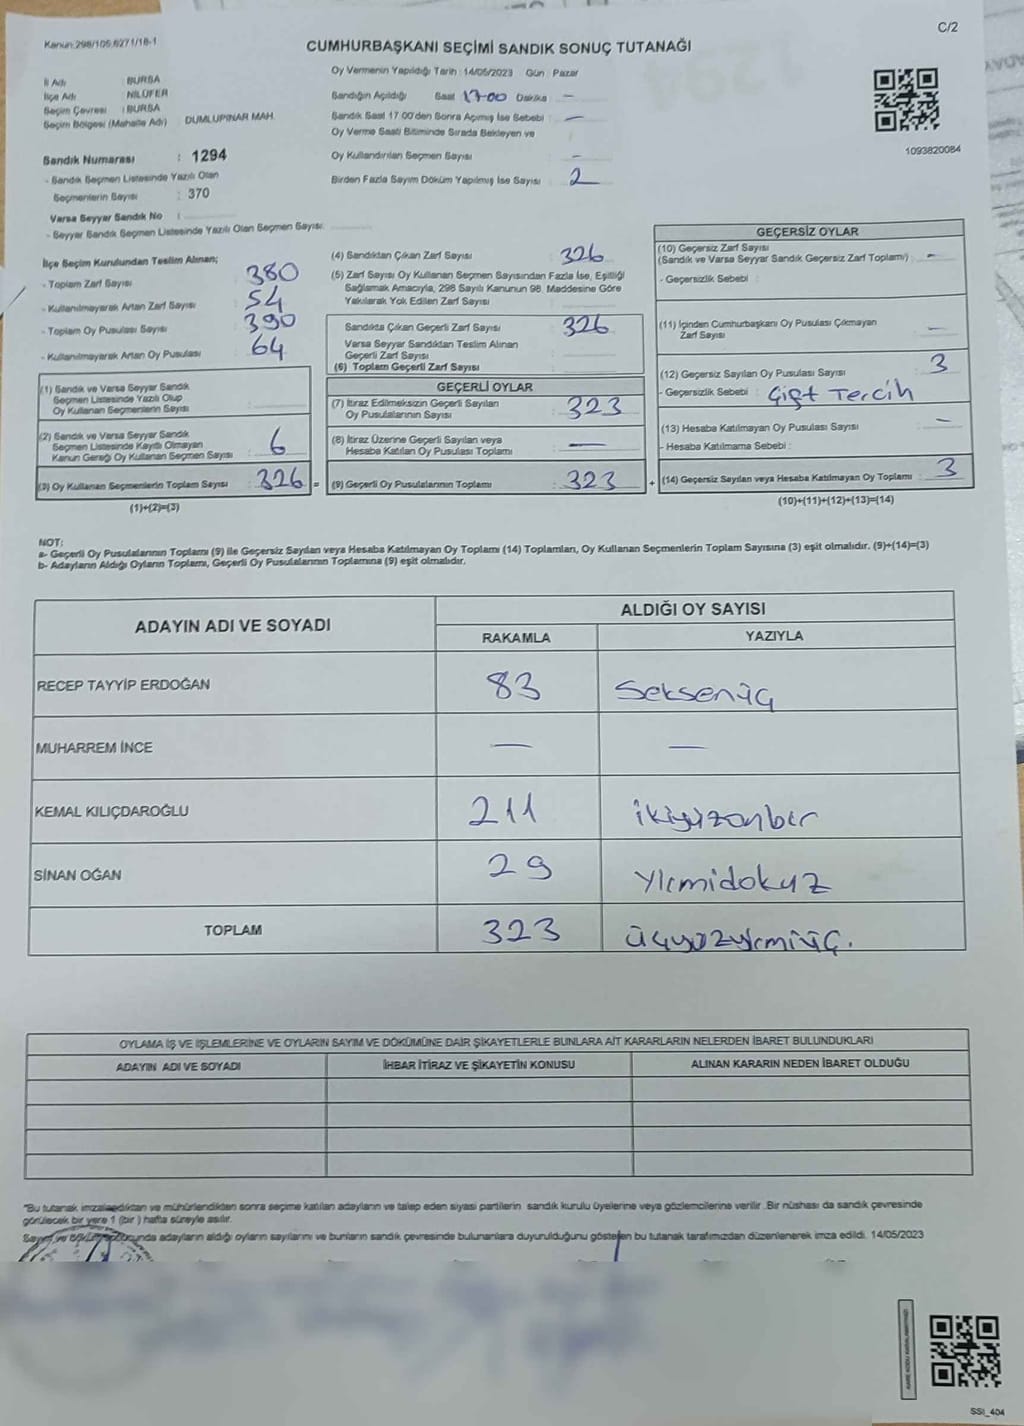 Kanun:298/105,6271/18-1
C/2
CUMHURBAŞKANI SEÇİMİ SANDIK SONUÇ TUTANAĞI
İl Adı : BURSA
İlçe Adı : NİLÜFER
Seçim Çevresi : BURSA
Seçim Bölgesi (Mahalle Adı) DUMLUPINAR MAH.
Sandık Numarası : 1294
- Sandık Seçmen Listesinde Yazılı Olan
Seçmenlerin Sayısı : 370
Varsa Seyyar Sandık No :
- Seyyar Sandık Seçmen Listesinde Yazılı Olan Seçmen Sayısı:
Oy Vermenin Yapıldığı Tarih : 14/05/2023 Gün : Pazar
Sandığın Açıldığı Saat 17:00 Dakika -
Sandık Saat 17.00'den Sonra Açımış İse Sebebi : -
Oy Verme Saati Bitiminde Sırada Bekleyen ve
Oy Kullandırılan Seçmen Sayısı : -
Birden Fazla Sayım Döküm Yapılmış İse Sayısı : 2
1093820084
İlçe Seçim Kurulundan Teslim Alınan;
- Toplam Zarf Sayısı 380
- Kullanılmayarak Artan Zarf Sayısı 54
- Toplam Oy Pusulası Sayısı 390
- Kullanılmayarak Artan Oy Pusulası 64
(1) Sandık ve Varsa Seyyar Sandık
Seçmen Listesinde Yazılı Olup
Oy Kullanan Seçmenlerin Sayısı :
(2) Sandık ve Varsa Seyyar Sandık
Seçmen Listesinde Kayıtlı Olmayan
Kanun Gereği Oy Kullanan Seçmen Sayısı : 6
(3) Oy Kullanan Seçmenlerin Toplam Sayısı : 326 =
(1)+(2)=(3)
(4) Sandıktan Çıkan Zarf Sayısı 326
(5) Zarf Sayısı Oy Kullanan Seçmen Sayısından Fazla İse, Eşitliği
Sağlamak Amacıyla, 298 Sayılı Kanunun 98. Maddesine Göre
Yakılarak Yok Edilen Zarf Sayısı
Sandıkta Çıkan Geçerli Zarf Sayısı 326
Varsa Seyyar Sandıktan Teslim Alınan
Geçerli Zarf Sayısı
(6) Toplam Geçerli Zarf Sayısı
GEÇERLİ OYLAR
(7) İtiraz Edilmeksizin Geçerli Sayılan
Oy Pusulalarının Sayısı : 323
(8) İtiraz Üzerine Geçerli Sayılan veya
Hesaba Katılan Oy Pusulası Toplamı : -
(9) Geçerli Oy Pusulalarının Toplamı : 323 +
GEÇERSİZ OYLAR
(10) Geçersiz Zarf Sayısı
(Sandık ve Varsa Seyyar Sandık Geçersiz Zarf Toplamı) : -
- Geçersizlik Sebebi :
(11) İçinden Cumhurbaşkanı Oy Pusulası Çıkmayan
Zarf Sayısı : -
(12) Geçersiz Sayılan Oy Pusulası Sayısı : 3
- Geçersizlik Sebebi : Çift Tercih
(13) Hesaba Katılmayan Oy Pusulası Sayısı : -
- Hesaba Katılmama Sebebi :
(14) Geçersiz Sayılan veya Hesaba Katılmayan Oy Toplamı : 3
(10)+(11)+(12)+(13)=(14)
NOT:
a- Geçerli Oy Pusulalarının Toplamı (9) ile Geçersiz Sayılan veya Hesaba Katılmayan Oy Toplamı (14) Toplamları, Oy Kullanan Seçmenlerin Toplam Sayısına (3) eşit olmalıdır. (9)+(14)=(3)
b- Adayların Aldığı Oyların Toplamı, Geçerli Oy Pusulalarının Toplamına (9) eşit olmalıdır.
ADAYIN ADI VE SOYADI
ALDIĞI OY SAYISI
RAKAMLA YAZIYLA
RECEP TAYYİP ERDOĞAN 83 Seksenüç
MUHARREM İNCE - -
KEMAL KILIÇDAROĞLU 211 ikiyüzonbir
SİNAN OĞAN 29 Yirmidokuz
TOPLAM 323 üçyüzyirmiüç.
OYLAMA İŞ VE İŞLEMLERİNE VE OYLARIN SAYIM VE DÖKÜMÜNE DAİR ŞİKAYETLERLE BUNLARA AİT KARARLARIN NELERDEN İBARET BULUNDUKLARI
ADAYIN ADI VE SOYADI İHBAR İTİRAZ VE ŞİKAYETİN KONUSU ALINAN KARARIN NEDEN İBARET OLDUĞU
*Bu tutanak imzalandıktan ve mühürlendikten sonra seçime katılan adayların ve talep eden siyasi partilerin sandık kurulu üyelerine veya gözlemcilerine verilir. Bir nüshası da sandık çevresinde
görülecek bir yere 1 (bir ) hafta süreyle asılır.
adayların aldığı oyların sayılarını ve bunların sandık çevresinde bulunanlara duyurulduğunu gösteren bu tutanak tarafımızdan düzenlenerek imza edildi. 14/05/2023
SSI_404